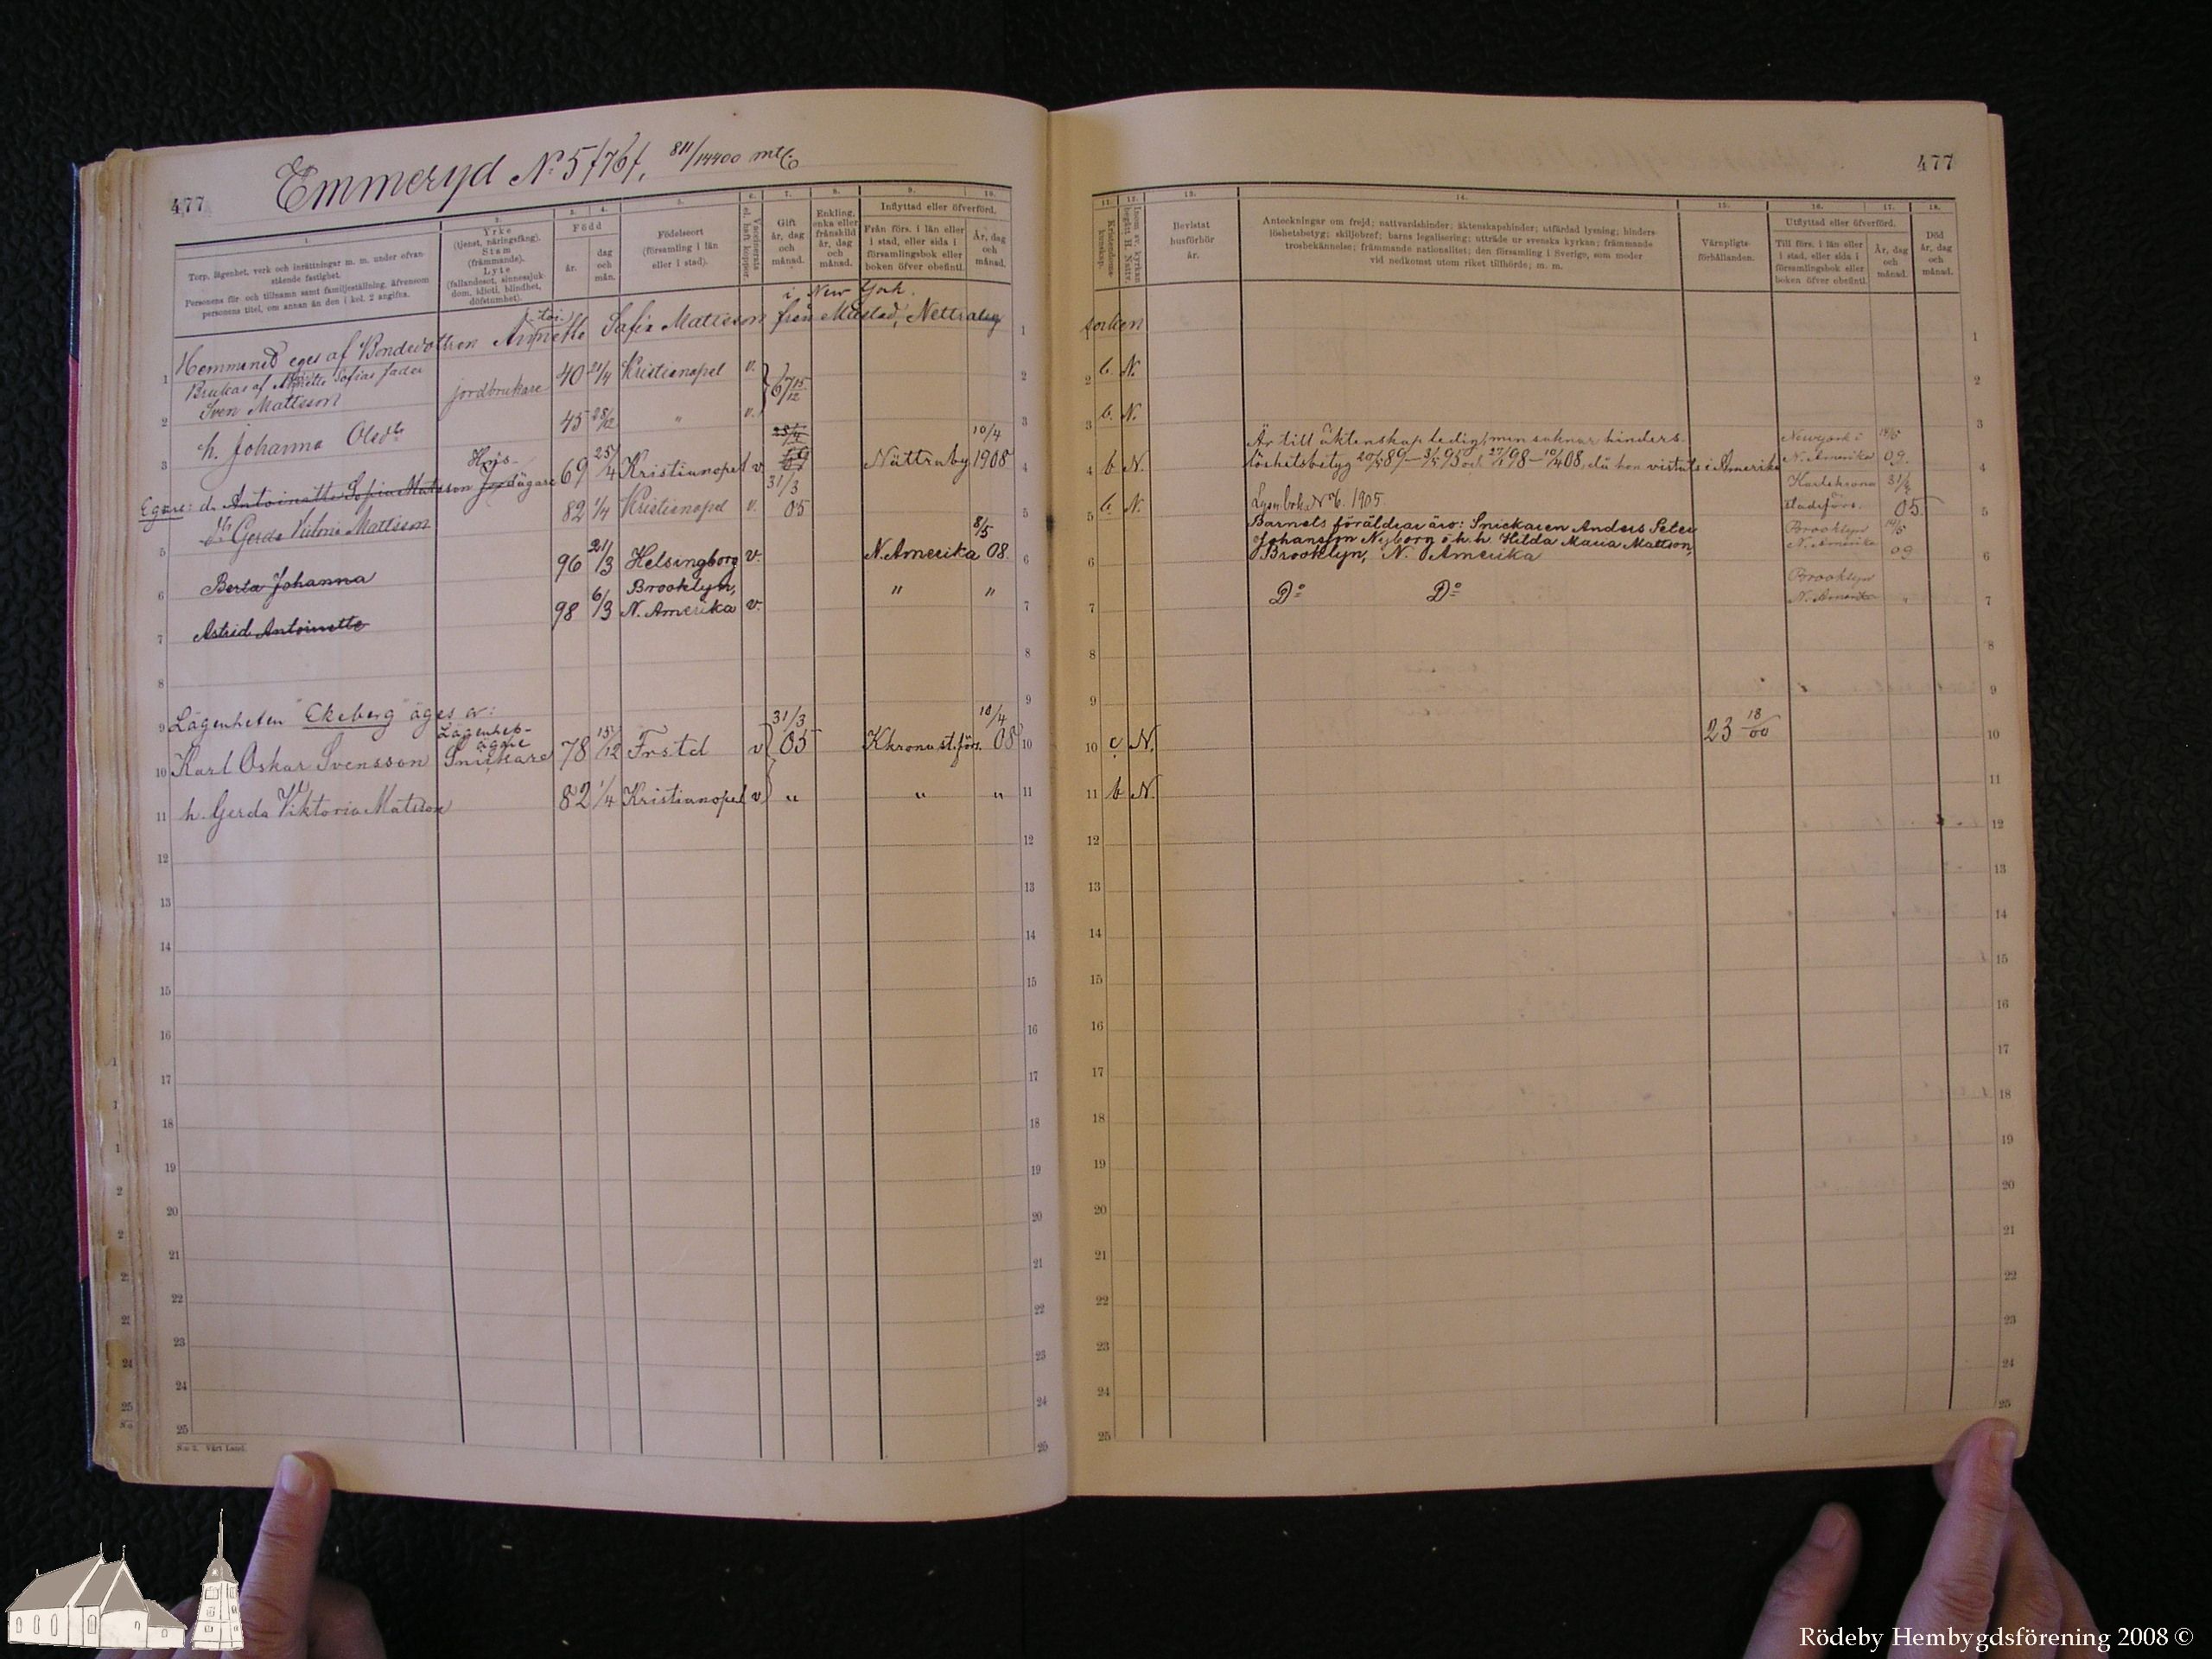 477
Emmeryd No 5 /76/, 811/14400 mtl
1.
Torp, lägenhet, verk och inrättningar m. m. under ofvan-
stående fastighet.
Personens för och tillnamn samt familjeställning, äfvensom
personens titel, om annan än den i kol. 2 angifna.
2.
Yrke
(tjenst, näringsfång).
Stam
(främmande).
Lyte
(fallandesot, sinnessjuk-
dom, idioti, blindhet,
döfstumhet).
3. 4.
Född
år.
dag
och
mån.
5.
Födelseort
(församling i län
eller i stad).
6.
Vaccinerats
el. haft koppor.
7.
Gift
år, dag
och
månad.
8.
Enkling,
enka eller
frånskild
år, dag
och
månad.
9. 10.
Inflyttad eller öfverförd.
Från förs. i län eller
i stad, eller sida i
församlingsbok eller
boken öfver obefintl.
År, dag
och
månad.
i New York.
1 Hemmanet eges af Bondedottren Sofia Mattsson från Nettraby 1
Brukas af Sofias fader
2 Sven Mattsson jordbrukare 40 21/4 Kristianopel v. 67 15/12 2
3 h. Johanna Olsdtr 45 28/12 " v. 3
Egare: d. Antoinette Sofia Matsson Hus- ägare 69 25/4 Kristianopel v. Nättraby 10/4 1908 4
5 dr Gerda Viktoria Mattsson 82 1/4 Kristianopel v. 31/3 05 5
6 Berta Johanna 96 21/3 Helsingborg v. N. Amerika 8/5 08 6
7 Astrid Antoinette 98 6/3 Brooklyn, N. Amerika v. " " 7
8 8
9 Lägenheten "Ekeberg" äges av: 9
Lägenhets-
ägare
10 Karl Oskar Svensson Snickare 78 15/12 Frstd v 31/3 05 Khrona st.förs. 10/4 08 10
11 h. Gerda Viktoria Matsson 82 1/4 Kristianopel v " " " 11
12 12
13 13
14 14
15 15
16 16
17 17
18 18
19 19
20 20
21 21
22 22
23 23
24 24
25 25
N:o 2. Vårt Land.
477
11.
Kristendoms-
kunskap.
12.
Inom sv. kyrkan
begått H. Nattv.
13.
Bevistat
husförhör
år.
14.
Anteckningar om frejd; nattvardshinder; äktenskapshinder; utfärdad lysning; hinders-
löshetsbetyg; skiljobref; barns legalisering; utträde ur svenska kyrkan; främmande
trosbekännelse; främmande nationalitet; den församling i Sverige, som moder
vid nedkomst utom riket tillhörde; m. m.
15.
Värnpligts-
förhållanden.
16. 17.
Utflyttad eller öfverförd.
Till förs. i län eller
i stad, eller sida i
församlingsbok eller
boken öfver obefintl.
År, dag
och
månad.
18.
Död
år, dag
och
månad.
1 socken 1
2 b. N. 2
3 b. N. 3
Är till äktenskap ledig, men saknar hinders- Newyork i 14/5
4 b N. löshetsbetyg 20/5 89 – 3/5 95 och 27/1 98 – 10/4 08, då hon vistats i Amerika N. Amerika 09. 4
5 b. N. Lysn.bok No 6. 1905. Karlskrona stadsförs. 31/3 05. 5
Barnets föräldrar äro: Snickaren Anders Peter
Johansson Nyborg o. h. h. Hilda Maria Mattson,
6 Brooklyn, N. Amerika Brooklyn N. Amerika 14/5 09 6
7 Do Do Brooklyn N. Amerika " 7
8 8
9 9
10 c N. 23 18/00 10
11 b N. 11
12 12
13 13
14 14
15 15
16 16
17 17
18 18
19 19
20 20
21 21
22 22
23 23
24 24
25 25
Rödeby Hembygdsförening 2008 ©